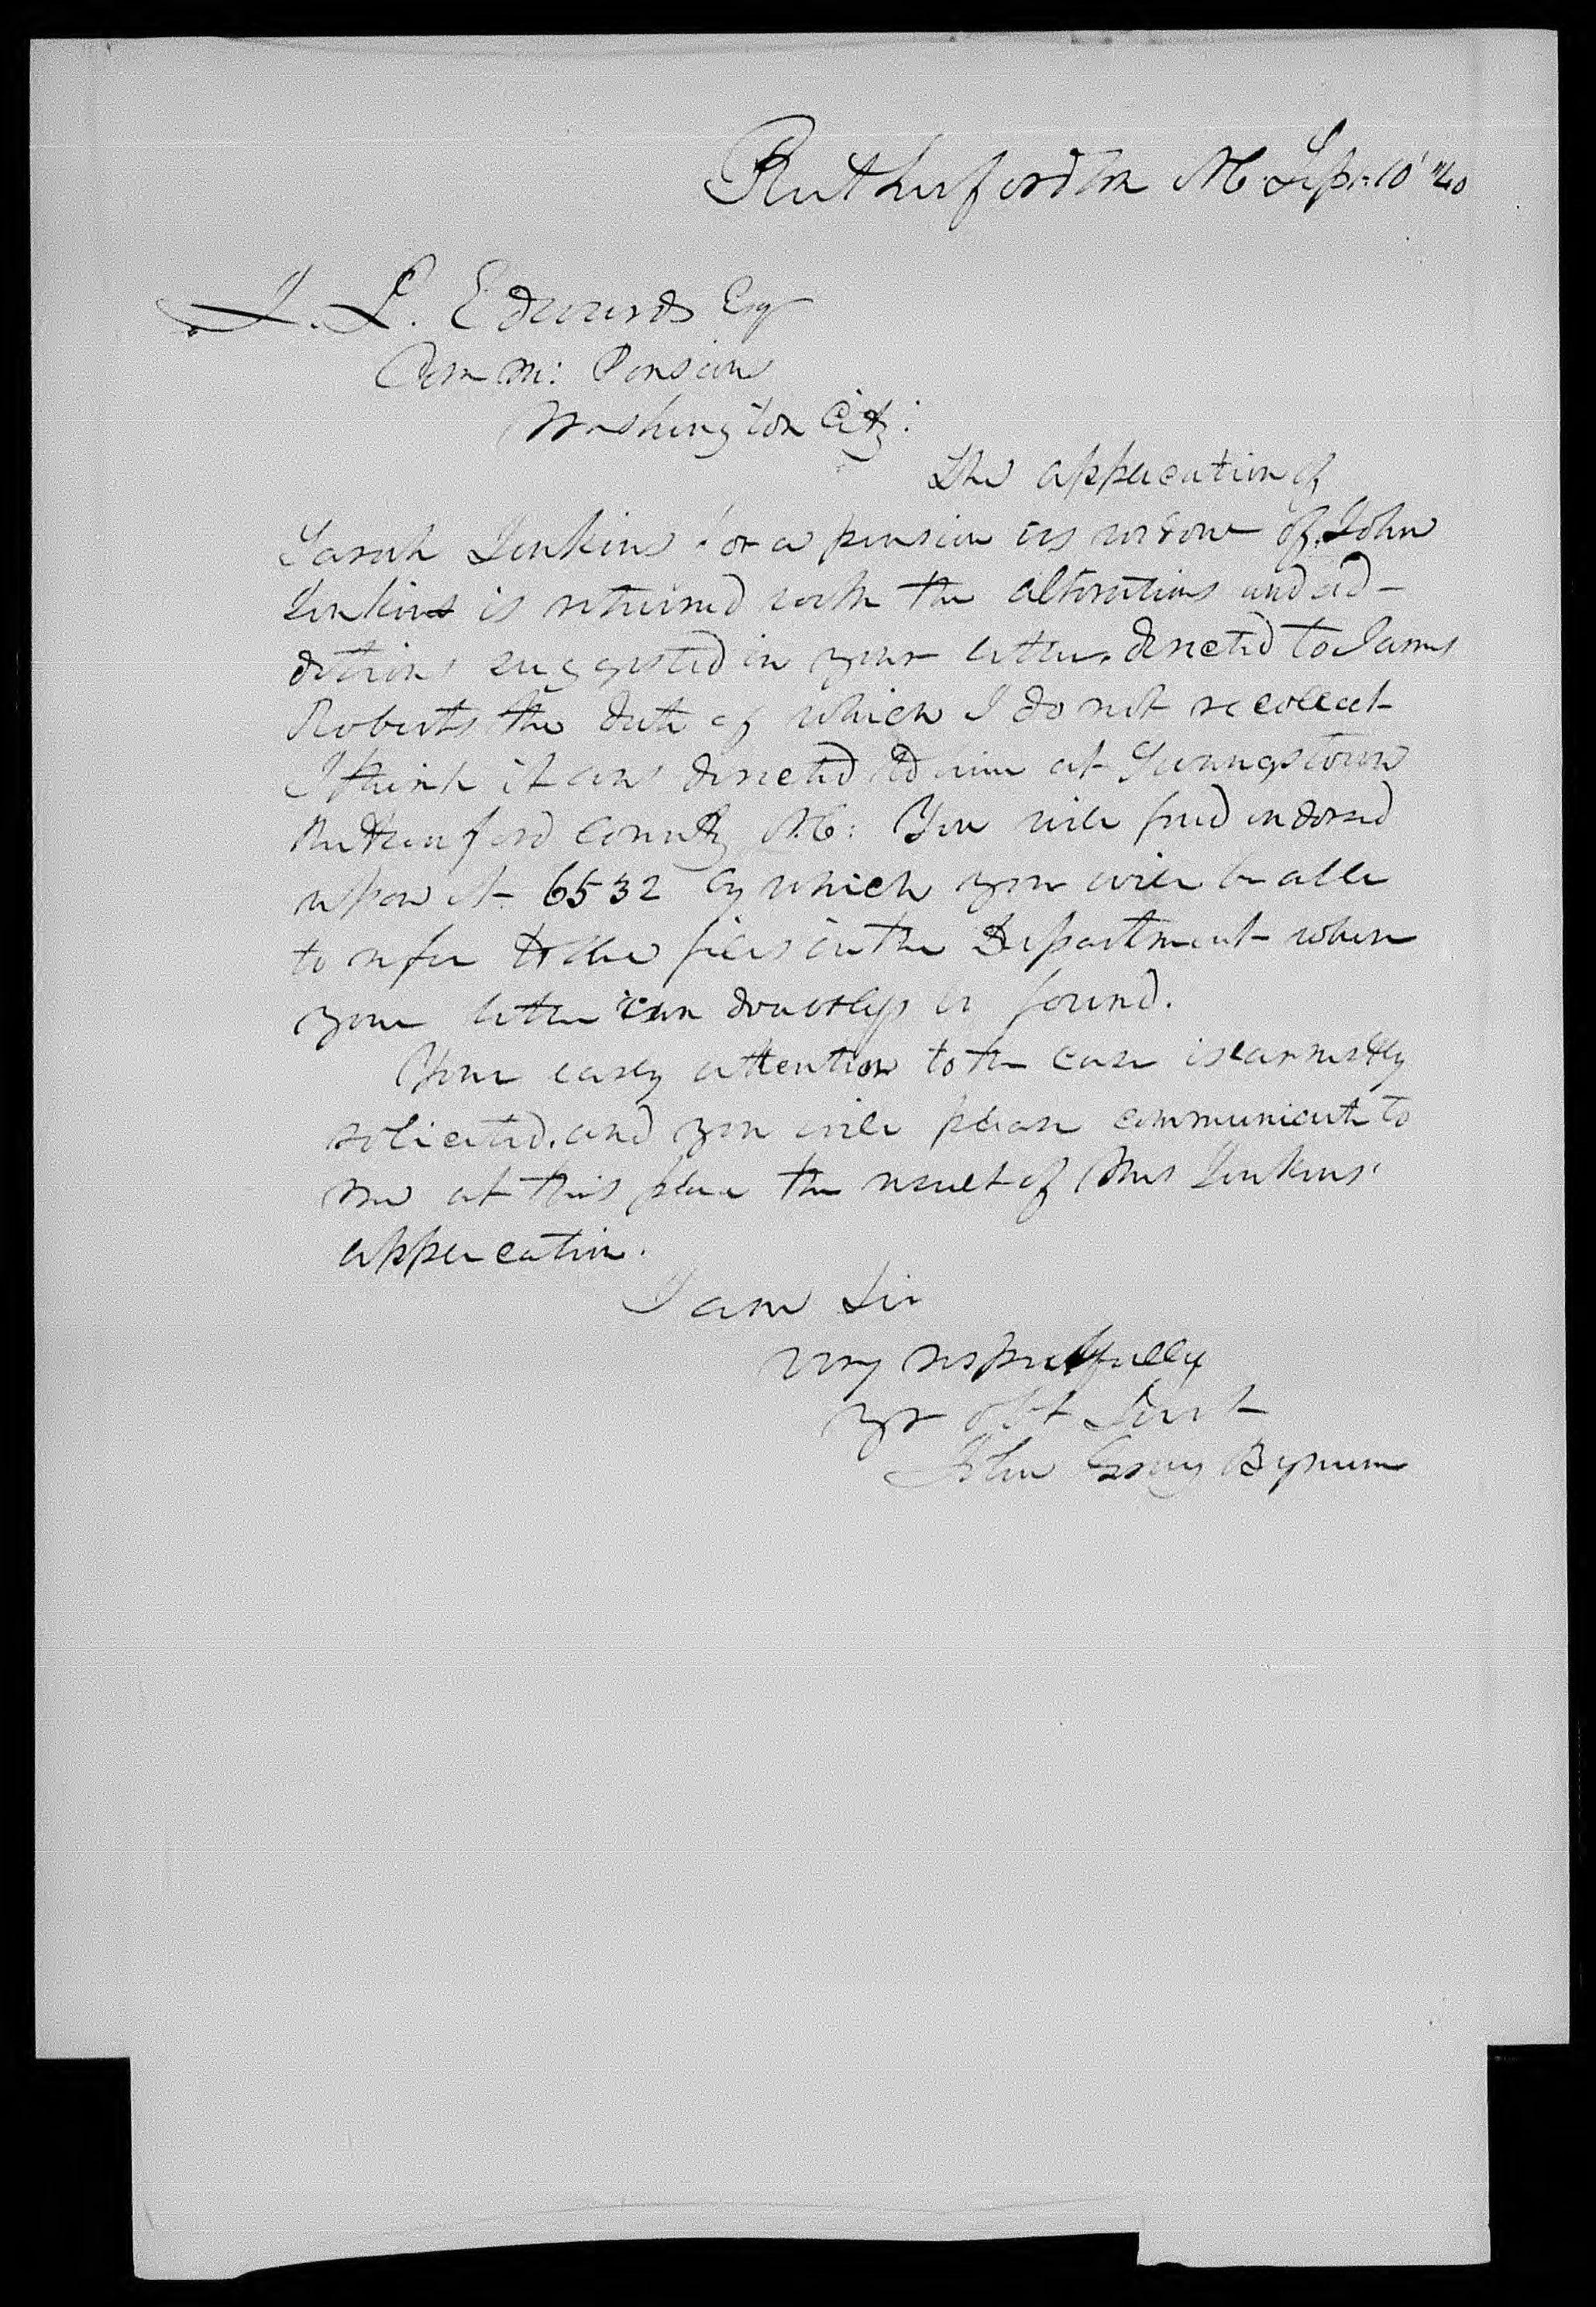 Rutherfordton NC. Sep: 10' '40
J. L. Edwards Esq
Comm: Pensions
Washington City:
The application of
Sarah Jenkins for a pension as widow of John
Jenkins is returned with the alterations and ad-
ditions suggested in your letter, directed to James
Roberts the date of which I do not recollect
I think it was directed to him at Youngstown
Rutherford County N.C: You will find endorsed
upon it 6532 by which you will be able
to refer to the files in the Department where
your letter can doubtless be found.
Your early attention to the case is earnestly
solicited, and you will please communicate to
me at this place the result of Mrs Jenkins'
application.
I am Sir
very respectfully
yr obt Servt
John Gray Bynum